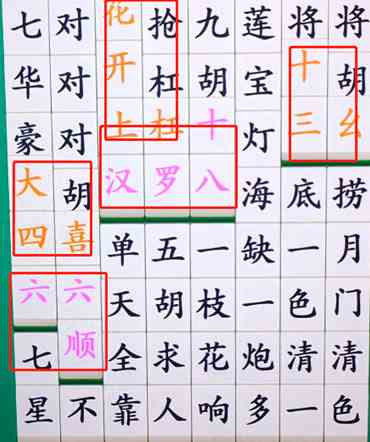 七对花抢九莲将将
华对开杠胡宝十胡
豪对上杠十灯三幺
大胡汉罗八海底捞
四喜单五一缺一月
六六天胡枝一色门
七顺全求花炮清清
星不靠人响多一色